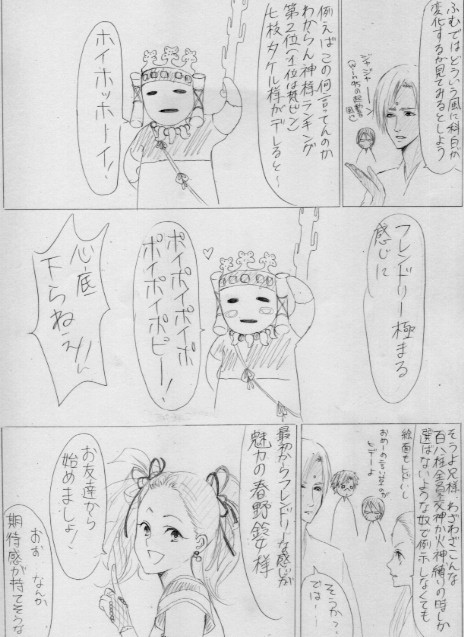 ふむではどういう風に科白が
変化するか見てみるとしよう
ジャジャーン
例えばこの何言ってんのか
わからん神様ランキング
第2位(1位は梵ピン)
七枝タケル様がデレると〜
ホイホッホーイ!
フレンドリー極まる
感じに
ポイポイポイポ
ポイポイポピー!
心底
下らねえ!!
そうよ兄様 わざわざこんな
百八柱全員愛神か火神縛りの時しか
選ばないような奴で例示しなくても
絵面もしんどいし
おめーの言い草が
ヒデーよ
そうか?
では…
最初からフレンドリーな感じが
魅力の春野鈴女様
お友達から
始めましょ!
おお なんか
期待感が持てそうな